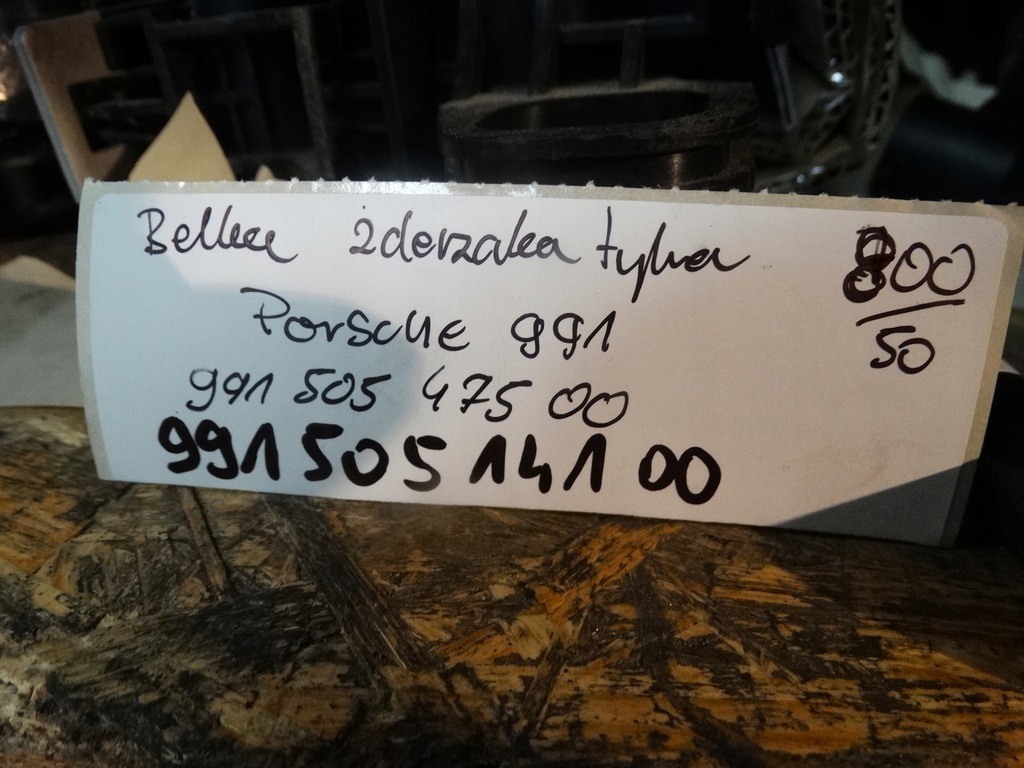 Belka zderzaka tylna
800
50
Porsche 991
991 505 475 00
991 505 141 00